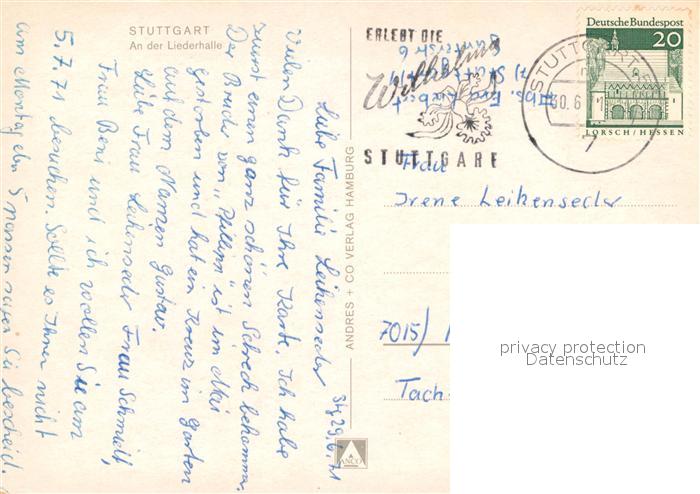 STUTTGART
An der Liederhalle
Stg 29.6.71
Liebe Familie Leikenseder
Vielen Dank für Ihre Karte. Ich habe
zuerst einen ganz schönen Schreck bekommen.
Der Bruder von "Philipp" ist im Mai
gestorben und hat ein Kreuz im Garten
auf dem Namen Gustav.
Liebe Frau Leikenseder Frau Schmidt,
Frau Beni und ich wollen Sie am
5.7.71 besuchen. Sollte es Ihnen nicht
am Montag den 5 passen sagen Sie bescheid.
ANDRES + CO VERLAG HAMBURG
ANCO
ERLEBT DIE
Wilhelma
STUTTGART
Abs.
7) Stuttgart
STUTTGART
30.6
7
Deutsche Bundespost
20
LORSCH/HESSEN
Frau
Irene Leikenseder
7015/
Tach
privacy protection
Datenschutz